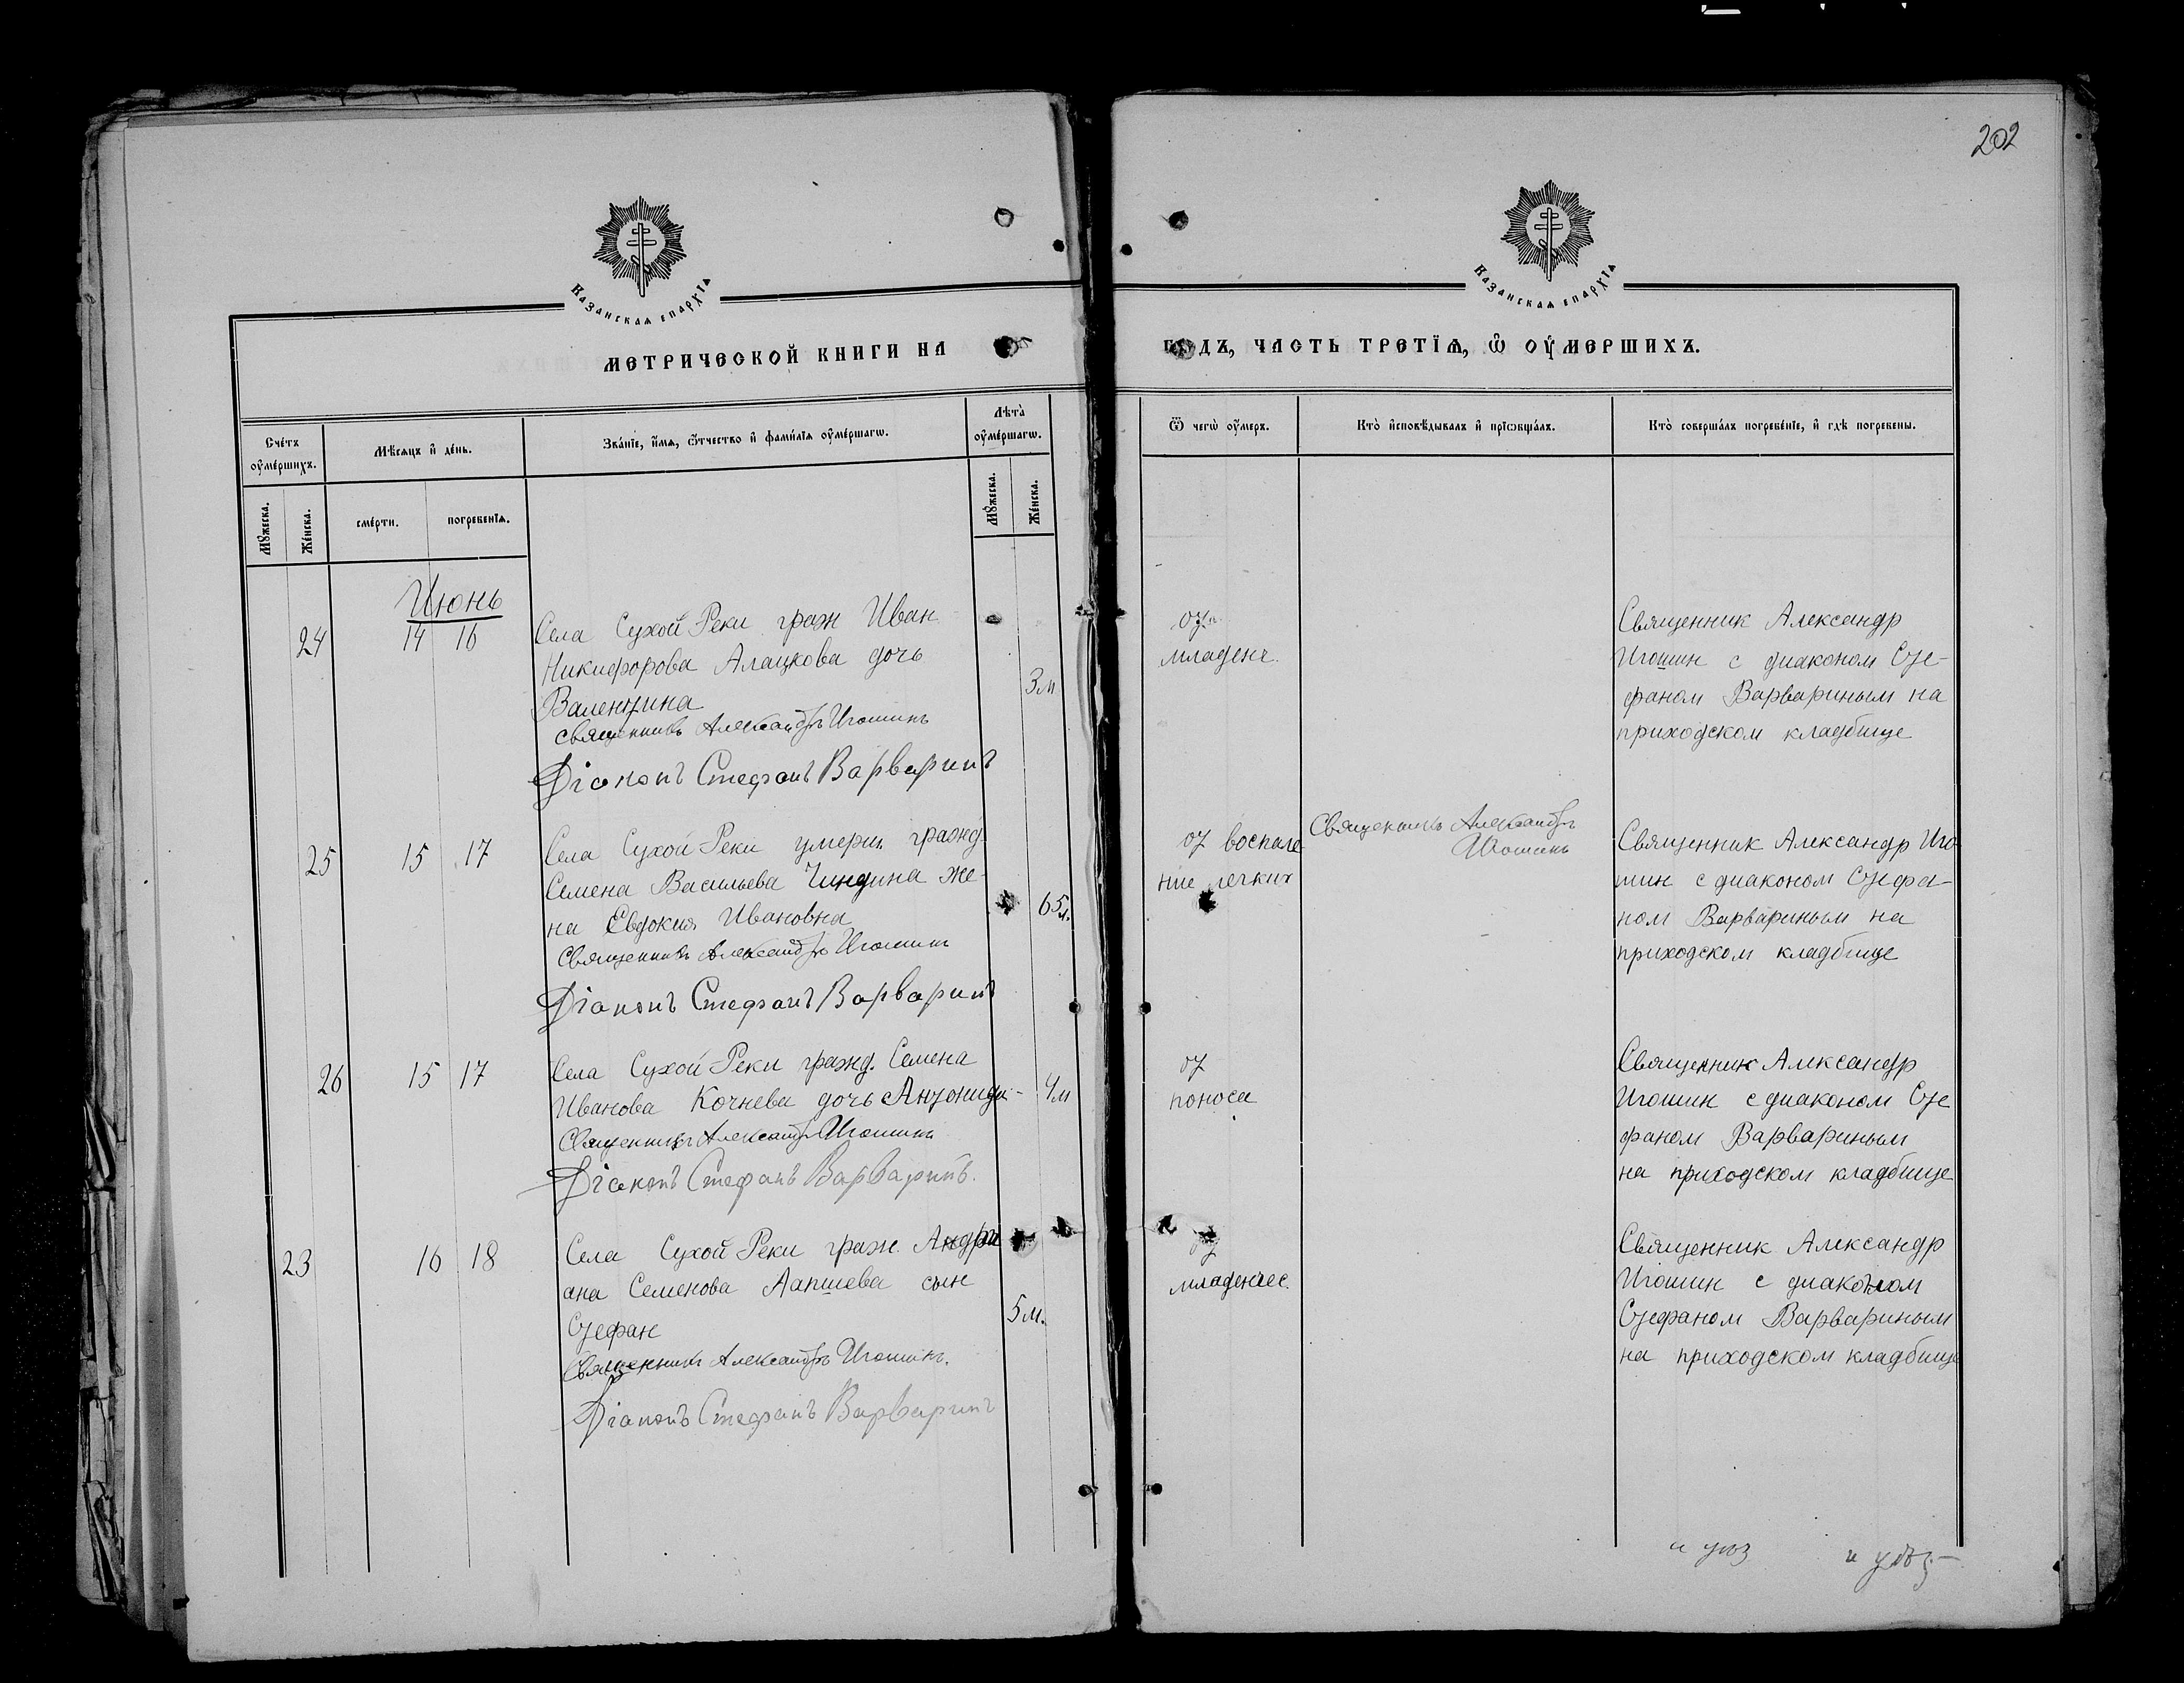 202
Казанская епархїѧ
Казанская епархїѧ
МЕТРИЧЕСКОЙ КНИГИ НА
ГОДЪ, ЧАСТЬ ТРЕТЇѦ, Ѿ ОУМЕРШИХЪ.
Счетъ оумершихъ.
Мѣсѧцъ и день.
Званїе, имѧ, ѻтчество и фамилїѧ оумершагѡ.
Лѣта оумершагѡ.
Ѿ чегѡ оумеръ.
Кто исповѣдывалъ и прїѡбщалъ.
Кто совершалъ погребенїе, и гдѣ погребены.
Мꙋжеска.
Женска.
смерти.
погребенїѧ.
Мꙋжеска.
Женска.
Июнь
24 14 16
Села Сухой Реки граж Иван
Никифорова Алацкова дочь
Валентина
священникъ Александръ Игошинъ
Дiаконъ Стефанъ Варваринъ
3м
от
младенч.
Священник Александр
Игошин с диаконом Сте-
фаном Варвариным на
приходском кладбище
25 15 17
Села Сухой Реки умерш. гражд.
Семена Васильева Чиндина же-
на Евдокия Ивановна
Священникъ Александръ Игошинъ
Дiаконъ Стефанъ Варваринъ
65л.
от воспале
ние легких
Священникъ Александръ
Игошинъ
Священник Александр Иго
шин с диаконом Стефа-
ном Варвариным на
приходском кладбище
26 15 17
Села Сухой Реки гражд. Семена
Иванова Кочнева дочь Антонида
Священникъ Александръ Игошинъ
Дiаконъ Стефанъ Варваринъ.
4м
от
поноса
Священник Александр
Игошин с диаконом Сте
фаном Варвариным
на приходском кладбище
23 16 18
Села Сухой Реки граж. Андри
ана Семенова Лапшева сын
Стефан
Священникъ Александръ Игошинъ.
Дiаконъ Стефанъ Варваринъ
5м.
от
младенчес.
Священник Александр
Игошин с диаконом
Стефаном Варвариным
на приходском кладбище